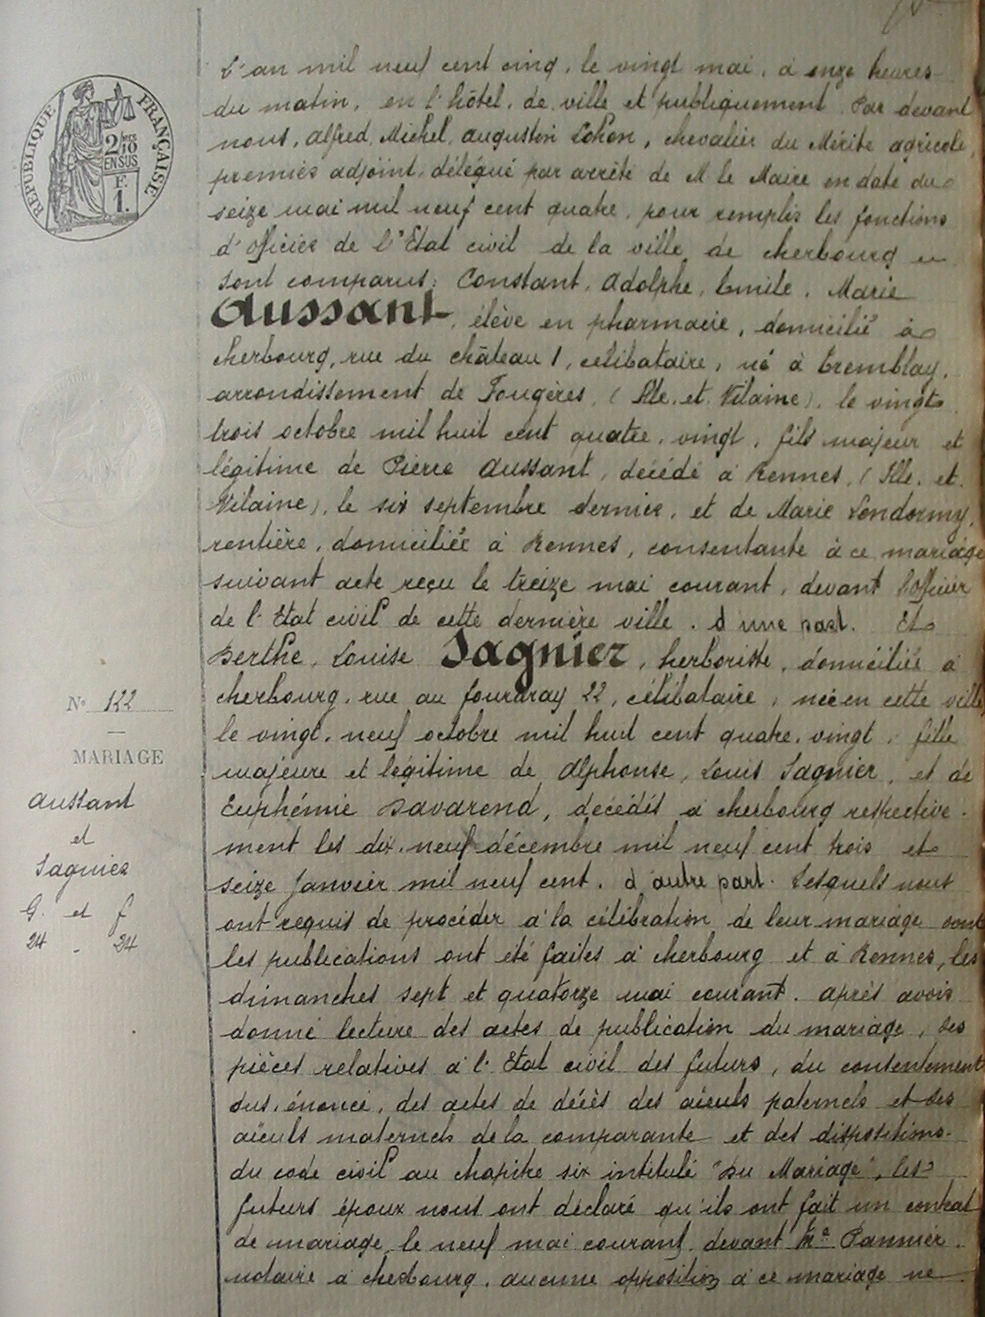 RÉPUBLIQUE FRANÇAISE
F.
1.
L'an mil neuf cent cinq, le vingt mai, à onze heures
du matin, en l'hôtel, de, ville et publiquement. Par devant
nous, Alfred, Michel, Augustin Lohen, chevalier du Mérite agricole,
premier adjoint, délégué par arrêté de M le Maire en date du
seize mai mil neuf cent quatre, pour remplir les fonctions
d'officier de l'Etat civil de la ville de Cherbourg
sont comparus: Constant, Adolphe, Emile, Marie
Aussant, élève en pharmacie, domicilié à
Cherbourg, rue du château 1, célibataire, né à Tremblay,
arrondissement de Fougères, (Ille. et. Vilaine), le vingt
trois octobre mil huit cent quatre, vingt, fils majeur et
légitime de Pierre Aussant, décédé à Rennes, (Ille. et.
Vilaine), le six septembre dernier, et de Marie Lendormy,
rentière, domiciliée à Rennes, consentante à ce mariage
suivant acte reçu le treize mai courant, devant l'officier
de l'Etat civil de cette dernière ville. d'une part. Et
Berthe, Louise Sagnier, herboriste, domiciliée à
Cherbourg, rue au fourdray 22, célibataire, née en cette ville
le vingt, neuf octobre mil huit cent quatre, vingt, fille
majeure et légitime de Alphonse, Louis Sagnier, et de
Euphémie Davarend, décédés à Cherbourg respective-
ment les dix, neuf décembre mil neuf cent trois et
seize janvier mil neuf cent. d'autre part. Lesquels nous
ont requis de procéder à la célébration de leur mariage dont
les publications ont été faites à Cherbourg et à Rennes, les
dimanches sept et quatorze mai courant. Après avoir
donné lecture des actes de publication du mariage, des
pièces relatives à l'Etat civil des futurs, du consentement
sus, énoncé, des actes de décès des aïeuls paternels et des
aïeuls maternels de la comparante et des dispositions
du code civil au chapitre six intitulé "Du Mariage", les
futurs époux nous ont déclaré qu'ils ont fait un contrat
de mariage, le neuf mai courant, devant Me Pannier.
notaire à Cherbourg. aucune opposition à ce mariage ne
N° 122
MARIAGE
Aussant
et
Sagnier
G. et f
24 - 24